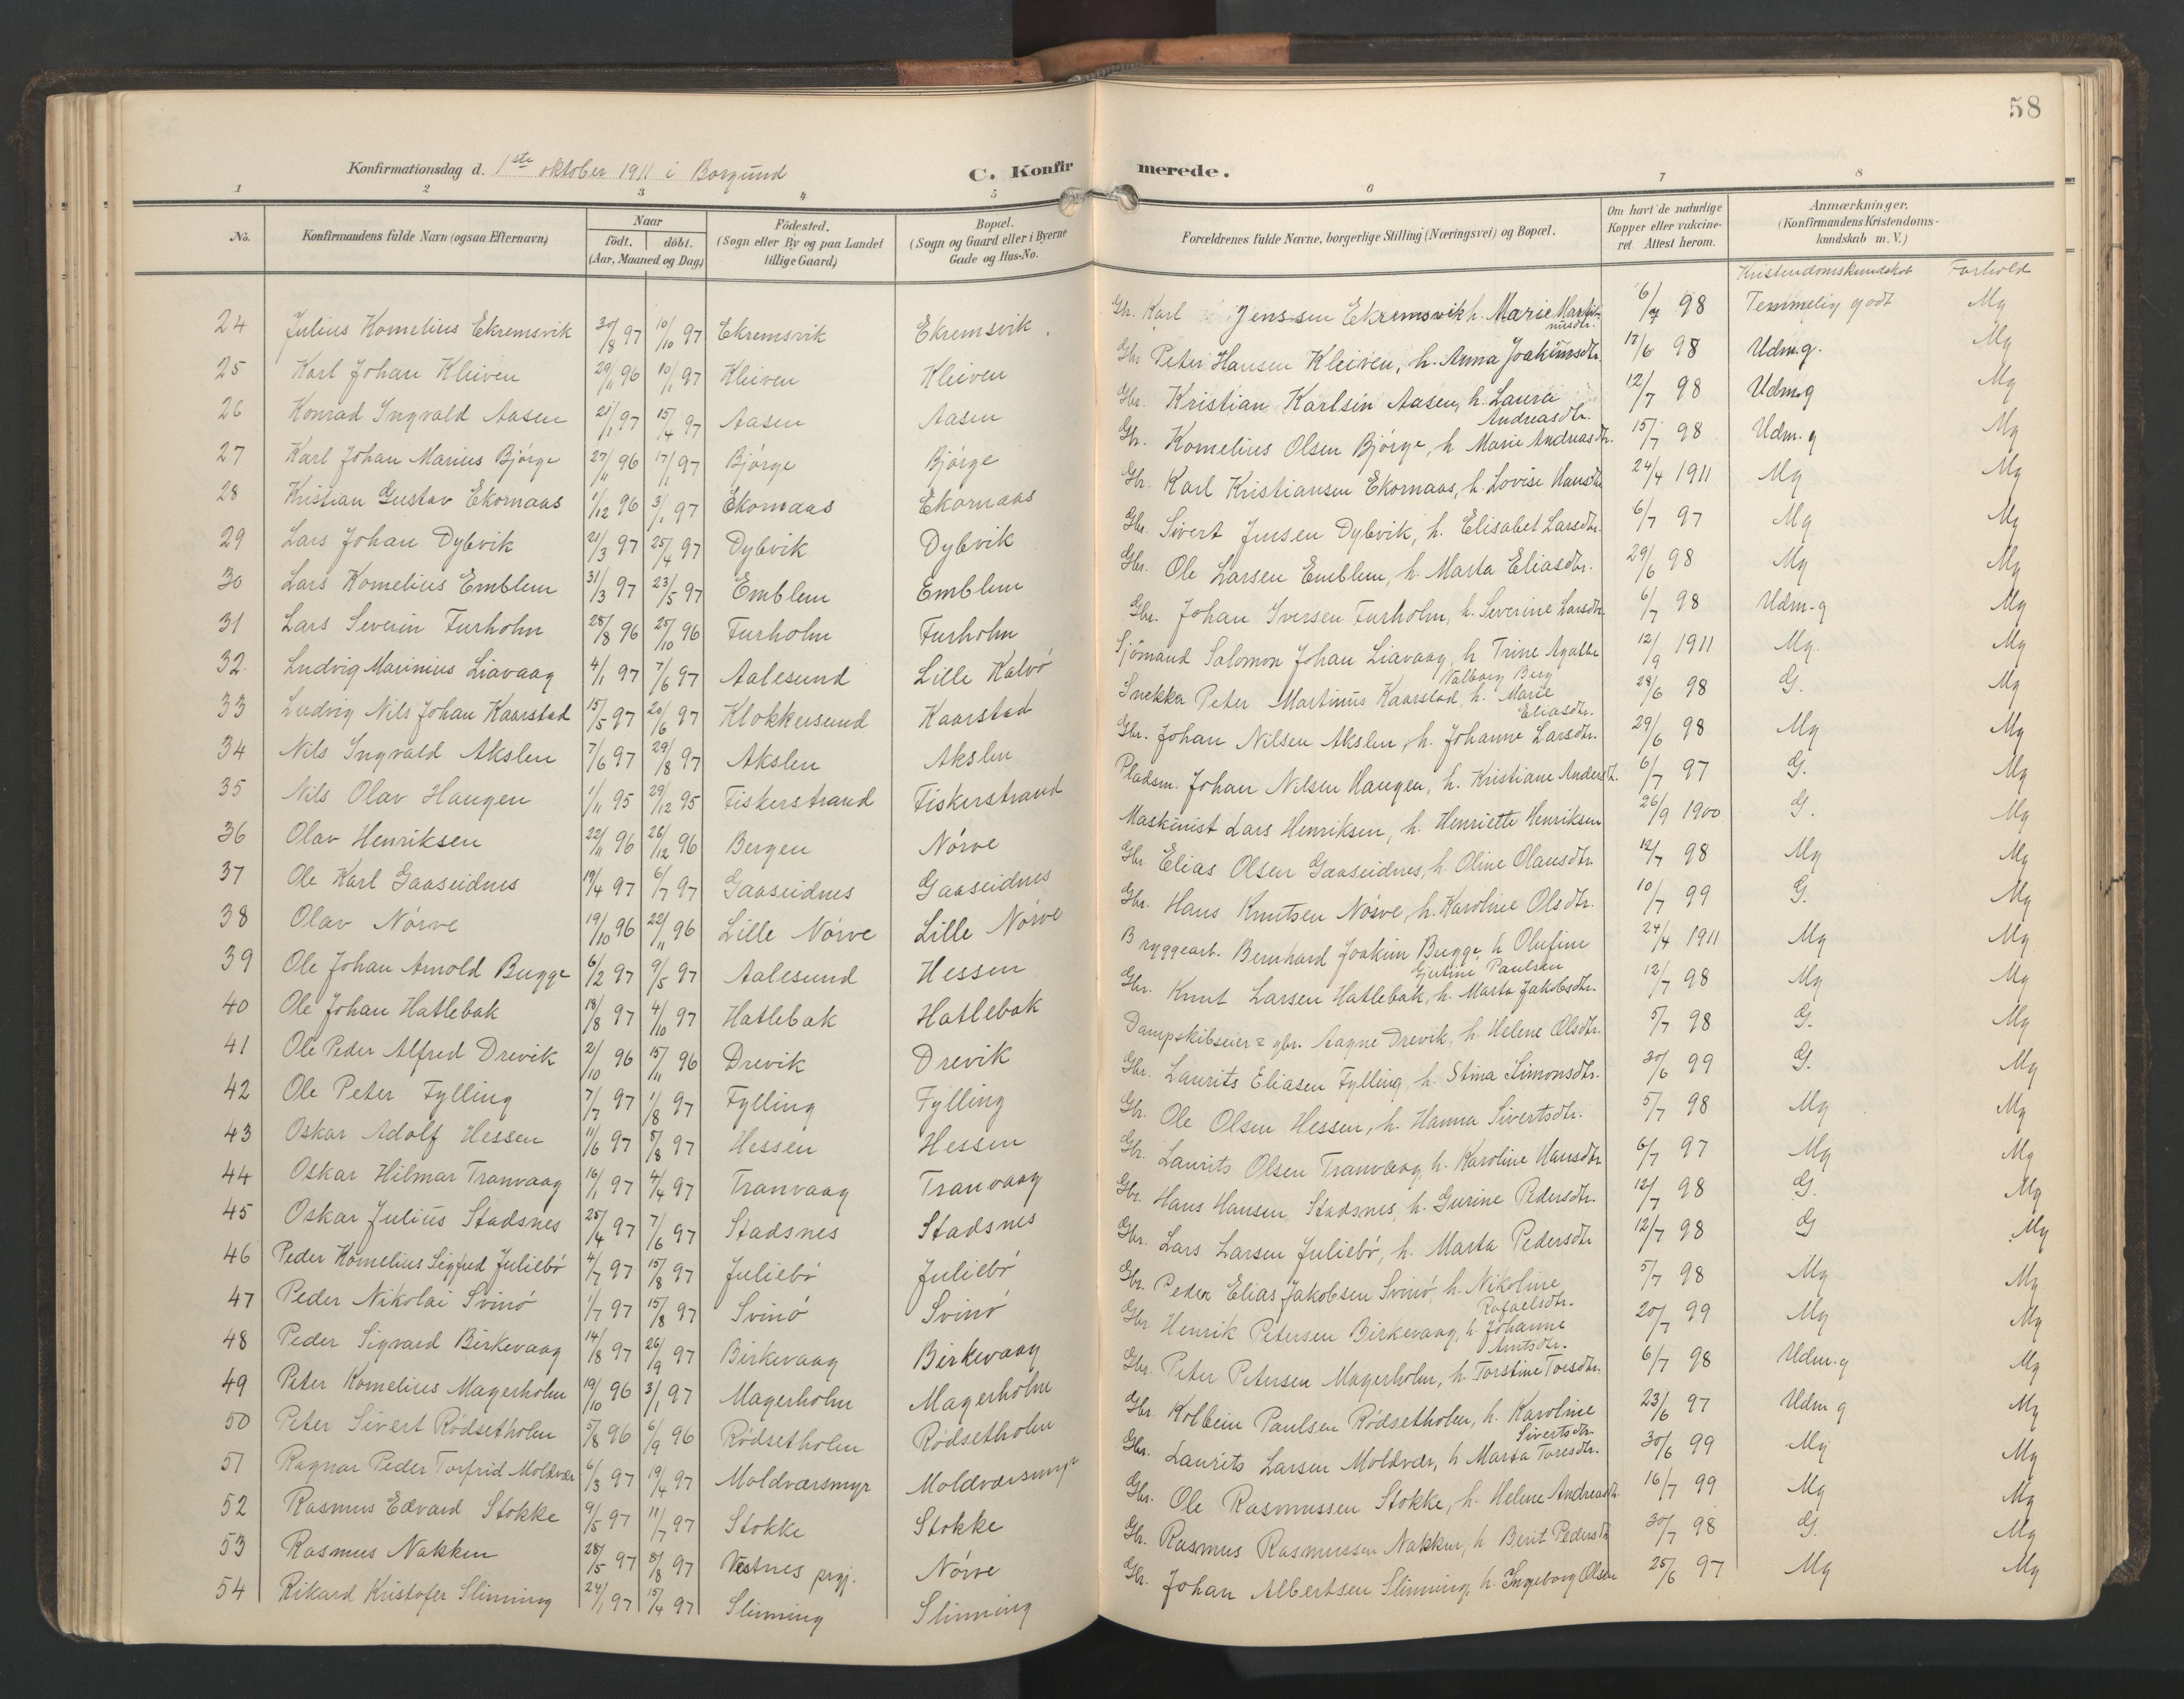 58
Konfirmationsdag d. 1ste oktober 1911 i Borgund C. Konfir merede.
1 2 3 4 5 6 7 8
No. Konfirmandens fulde Navn (ogsaa Efternavn) Naar födt. döbt. (Aar, Maaned og Dag) Födested. (Sogn eller By og paa Landet tillige Gaard) Bopæl. (Sogn og Gaard eller i Byerne Gade og Hus-No. Forældrenes fulde Navne, borgerlige Stilling (Næringsvei) og Bopæl. Om havt de naturlige Kopper eller vakcineret. Attest herom. Anmærkninger. (Konfirmandens Kristendomskundskab m. V.)
Kristendomskundskab Forhold
24 Julius Kornelius Ekremsvik 30/8 97 10/10 97 Ekremsvik Ekremsvik. Gbr. Karl Jenssen Ekremsvik h. Marie Martinusdtr. 6/7 98 Temmelig godt Mg
25 Karl Johan Kleiven 29/11 96 10/1 97 Kleiven Kleiven Gbr Peter Hansen Kleiven, h. Anna Joakimsdtr. 17/6 98 Udm.g. Mg
26 Konrad Ingvald Aasen 21/1 97 15/4 97 Aasen Aasen Gbr. Kristian Karlsen Aasen, h. Laura Andreasdtr. 12/7 98 Udm.g Mg
27 Karl Johan Marius Bjørge 27/11 96 17/1 97 Bjørge Bjørge Gbr. Kornelius Olsen Bjørge, h Marie Andreasdtr. 15/7 98 Udm.g Mg
28 Kristian Gustav Ekornaas 1/12 96 3/1 97 Ekornaas Ekornaas Gbr. Karl Kristiansen Ekornaas, h. Lovise Hansdtr 24/4 1911 Mg Mg
29 Lars Johan Dybvik 21/3 97 25/4 97 Dybvik Dybvik Gbr. Sivert Jensen Dybvik, h. Elisabet Larsdtr. 6/7 97 Mg Mg
30 Lars Kornelius Emblem 31/3 97 23/5 97 Emblem Emblem Gbr. Ole Larsen Emblem, h. Marta Eliasdtr. 29/6 98 Mg Mg
31 Lars Severin Furholm 28/8 96 25/10 96 Furholm Furholm Gbr. Johan Iversen Furholm, h. Severine Larsdtr 6/7 98 Udm.g Mg
32 Ludvig Marinius Liavaag 4/1 97 7/6 97 Aalesund Lille Kalvø Sjømand Salomon Johan Liavaag, h Trine Agathe Valborg Berg 12/9 1911 Mg. Mg
33 Ludvig Nils Johan Kaarstad 15/5 97 20/6 97 Klokkersund Kaarstad Snekka Peter Martinus Kaarstad, h. Marie Eliasdtr. 28/6 98 G. Mg
34 Nils Ingvald Akslen 7/6 97 29/8 97 Akslen Akslen Gbr. Johan Nilsen Akslen, h. Johanne Larsdtr. 29/6 98 Mg Mg
35 Nils Olav Haugen 1/11 95 29/12 95 Fiskerstrand Fiskerstrand Pladsm. Johan Nilsen Haugen, h. Kristiane Andersdt. 6/7 97 G. Mg
36 Olav Henriksen 22/11 96 26/12 96 Bergen Nørve Maskinist Lars Henriksen, h. Henriette Henriksen 26/9 1900 G. Mg
37 Ole Karl Gaaseidnes 19/4 97 6/7 97 Gaaseidnes Gaaseidnes Gbr. Elias Olsen Gaaseidnes, h. Oline Olausdtr. 12/7 98 Mg Mg
38 Olav Nørve 19/10 96 22/11 96 Lille Nørve Lille Nørve Gbr. Hans Knutsen Nørve, h. Karoline Olsdtr. 10/7 99 G. Mg
39 Ole Johan Arnold Bugge 6/2 97 9/5 97 Aalesund Hessen Bryggearb. Bernhard Joakim Bugge, h Olufine Gjertine Paulsen 24/4 1911 Mg Mg
40 Ole Johan Hatlebak 18/8 97 4/10 97 Hatlebak Hatlebak Gbr. Knut Larsen Hatlebak, h. Marta Jakobsdtr. 12/7 98 Mg Mg
41 Ole Peder Alfred Drevik 2/10 96 15/11 96 Drevik Drevik Dampskibseier = gbr. Aagne Drevik, h. Helene Olsdtr. 5/7 98 G. Mg
42 Ole Peter Fylling 7/7 97 1/8 97 Fylling Fylling Gbr. Laurits Eliasen Fylling, h. Stina Simonsdtr. 30/6 99 G. Mg
43 Oskar Adolf Hessen 11/6 97 8/8 97 Hessen Hessen Gbr. Ole Olsen Hessen, h. Hanna Sivertsdtr. 5/7 98 Mg Mg
44 Oskar Hilmar Tranvaag 16/1 97 4/4 97 Tranvaag Tranvaag Gbr. Laurits Olsen Tranvaag, h. Karoline Hansdtr 6/7 97 Mg Mg
45 Oskar Julius Stadsnes 25/4 97 7/6 97 Stadsnes Stadsnes Gbr. Hans Hansen Stadsnes, h. Gurine Pedersdtr. 12/7 98 G. Mg
46 Peder Kornelius Sigfred Juliebø 4/7 97 15/8 97 Juliebø Juliebø Gbr. Lars Larsen Juliebø, h. Marta Pedersdtr 12/7 98 G Mg
47 Peder Nikolai Svinø 1/7 97 15/8 97 Svinø Svinø Gbr. Peder Elias Jakobsen Svinø, h. Nikoline Rafaelsdtr. 5/7 98 Mg Mg
48 Peder Sigvard Birkevaag 14/8 97 26/9 97 Birkevaag Birkevaag Gbr Henrik Petersen Birkevaag, h. Johanne Arntsdtr. 20/7 99 Mg Mg
49 Peter Kornelius Magerholm 19/10 96 3/1 97 Magerholm Magerholm Gbr. Peter Petersen Magerholm, h. Torstine Torsdtr. 6/7 98 Udm.g Mg
50 Peter Sivert Rødsetholm 5/8 96 6/9 96 Rødsetholm Rødsetholm Gbr. Kolbein Paulsen Rødsetholm, h. Karoline Sivertsdtr 23/6 97 Udm g Mg
51 Ragnar Peder Torfrid Moldvær 6/3 97 19/4 97 Moldværsmyr Moldværsmyr Gbr. Laurits Larsen Moldvær, h Marta Toresdtr. 30/6 99 Mg Mg
52 Rasmus Edvard Stokke 9/5 97 11/7 97 Stokke Stokke Gbr. Ole Rasmussen Stokke, h. Helene Andreasdt. 16/7 99 Mg Mg
53 Rasmus Nakken 28/5 97 8/8 97 Vestnes prgj. Nørve Gbr. Rasmus Rasmussen Nakken, h Berit Pedersdt 30/7 98 G. Mg
54 Rikard Kristofer Slinning 24/1 97 15/4 97 Slinning Slinning Gbr. Johan Albertsen Slinning, h. Ingeborg Olsen 25/6 97 Mg Mg